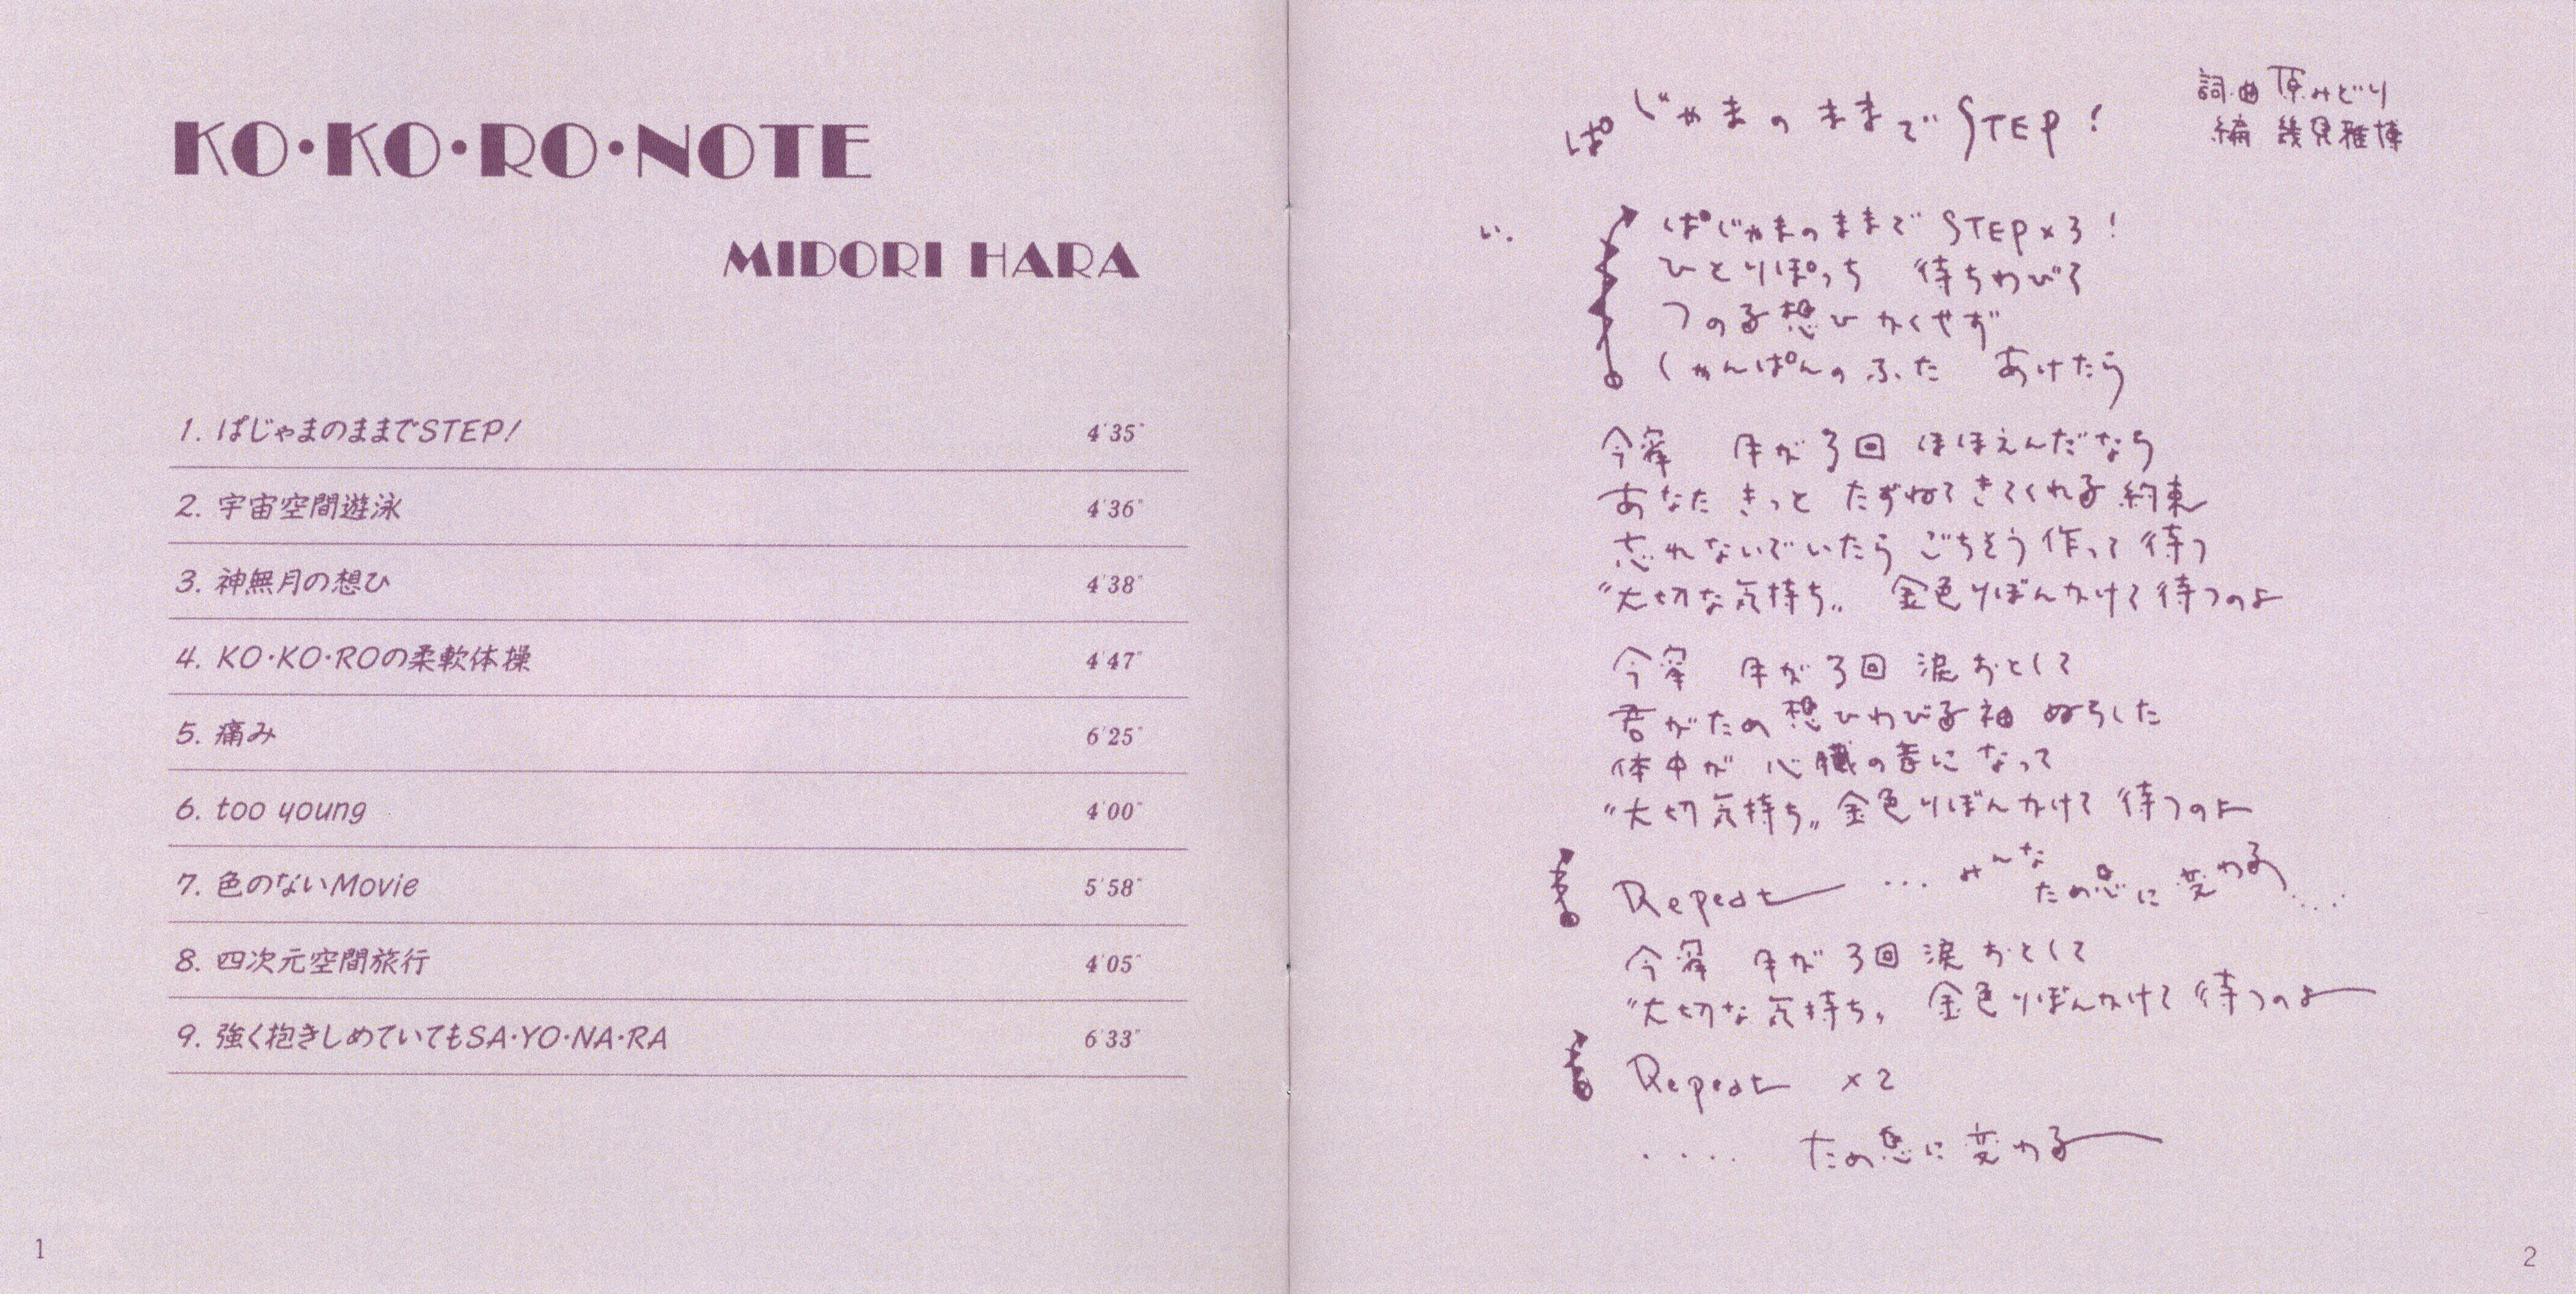 KO·KO·RO·NOTE
MIDORI HARA
1. ぱじゃまのままでSTEP! 4'35"
2. 宇宙空間遊泳 4'36"
3. 神無月の想ひ 4'38"
4. KO·KO·ROの柔軟体操 4'47"
5. 痛み 6'25"
6. too young 4'00"
7. 色のないMovie 5'58"
8. 四次元空間旅行 4'05"
9. 強く抱きしめていてもSA·YO·NA·RA 6'33"
1
ぱじゃまのままでSTEP!
詞・曲 原みどり
編 幾見雅博
い.
ぱじゃまのままで STEP×3!
ひとりぽっち 待ちわびて
つのる想ひ かくせず
しゃんぱんのふた あけたら
今宵 月が3回 ほほえんだなら
あなた きっと たずねてきてくれる約束
忘れないでいたら ごちそう作って待つ
"大切な気持ち" 金色りぼんかけて待つのよ
今宵 月が3回 涙おとして
君がため 想ひわびる袖 ぬらした
体中が 心臓の音になって
"大切気持ち" 金色りぼんかけて 待つのよ
Repeat ... みんな ため息に変わる....
今宵 月が3回 涙おとして
"大切な気持ち" 金色りぼんかけて 待つのよ
Repeat ×2
.... ため息に変わる
2